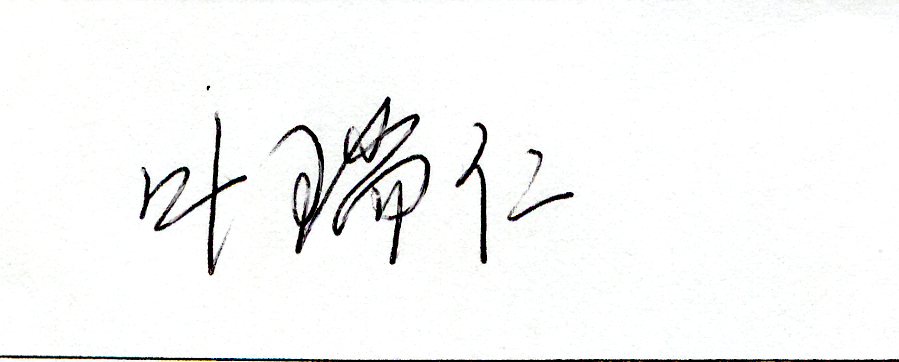 叶瑞仁